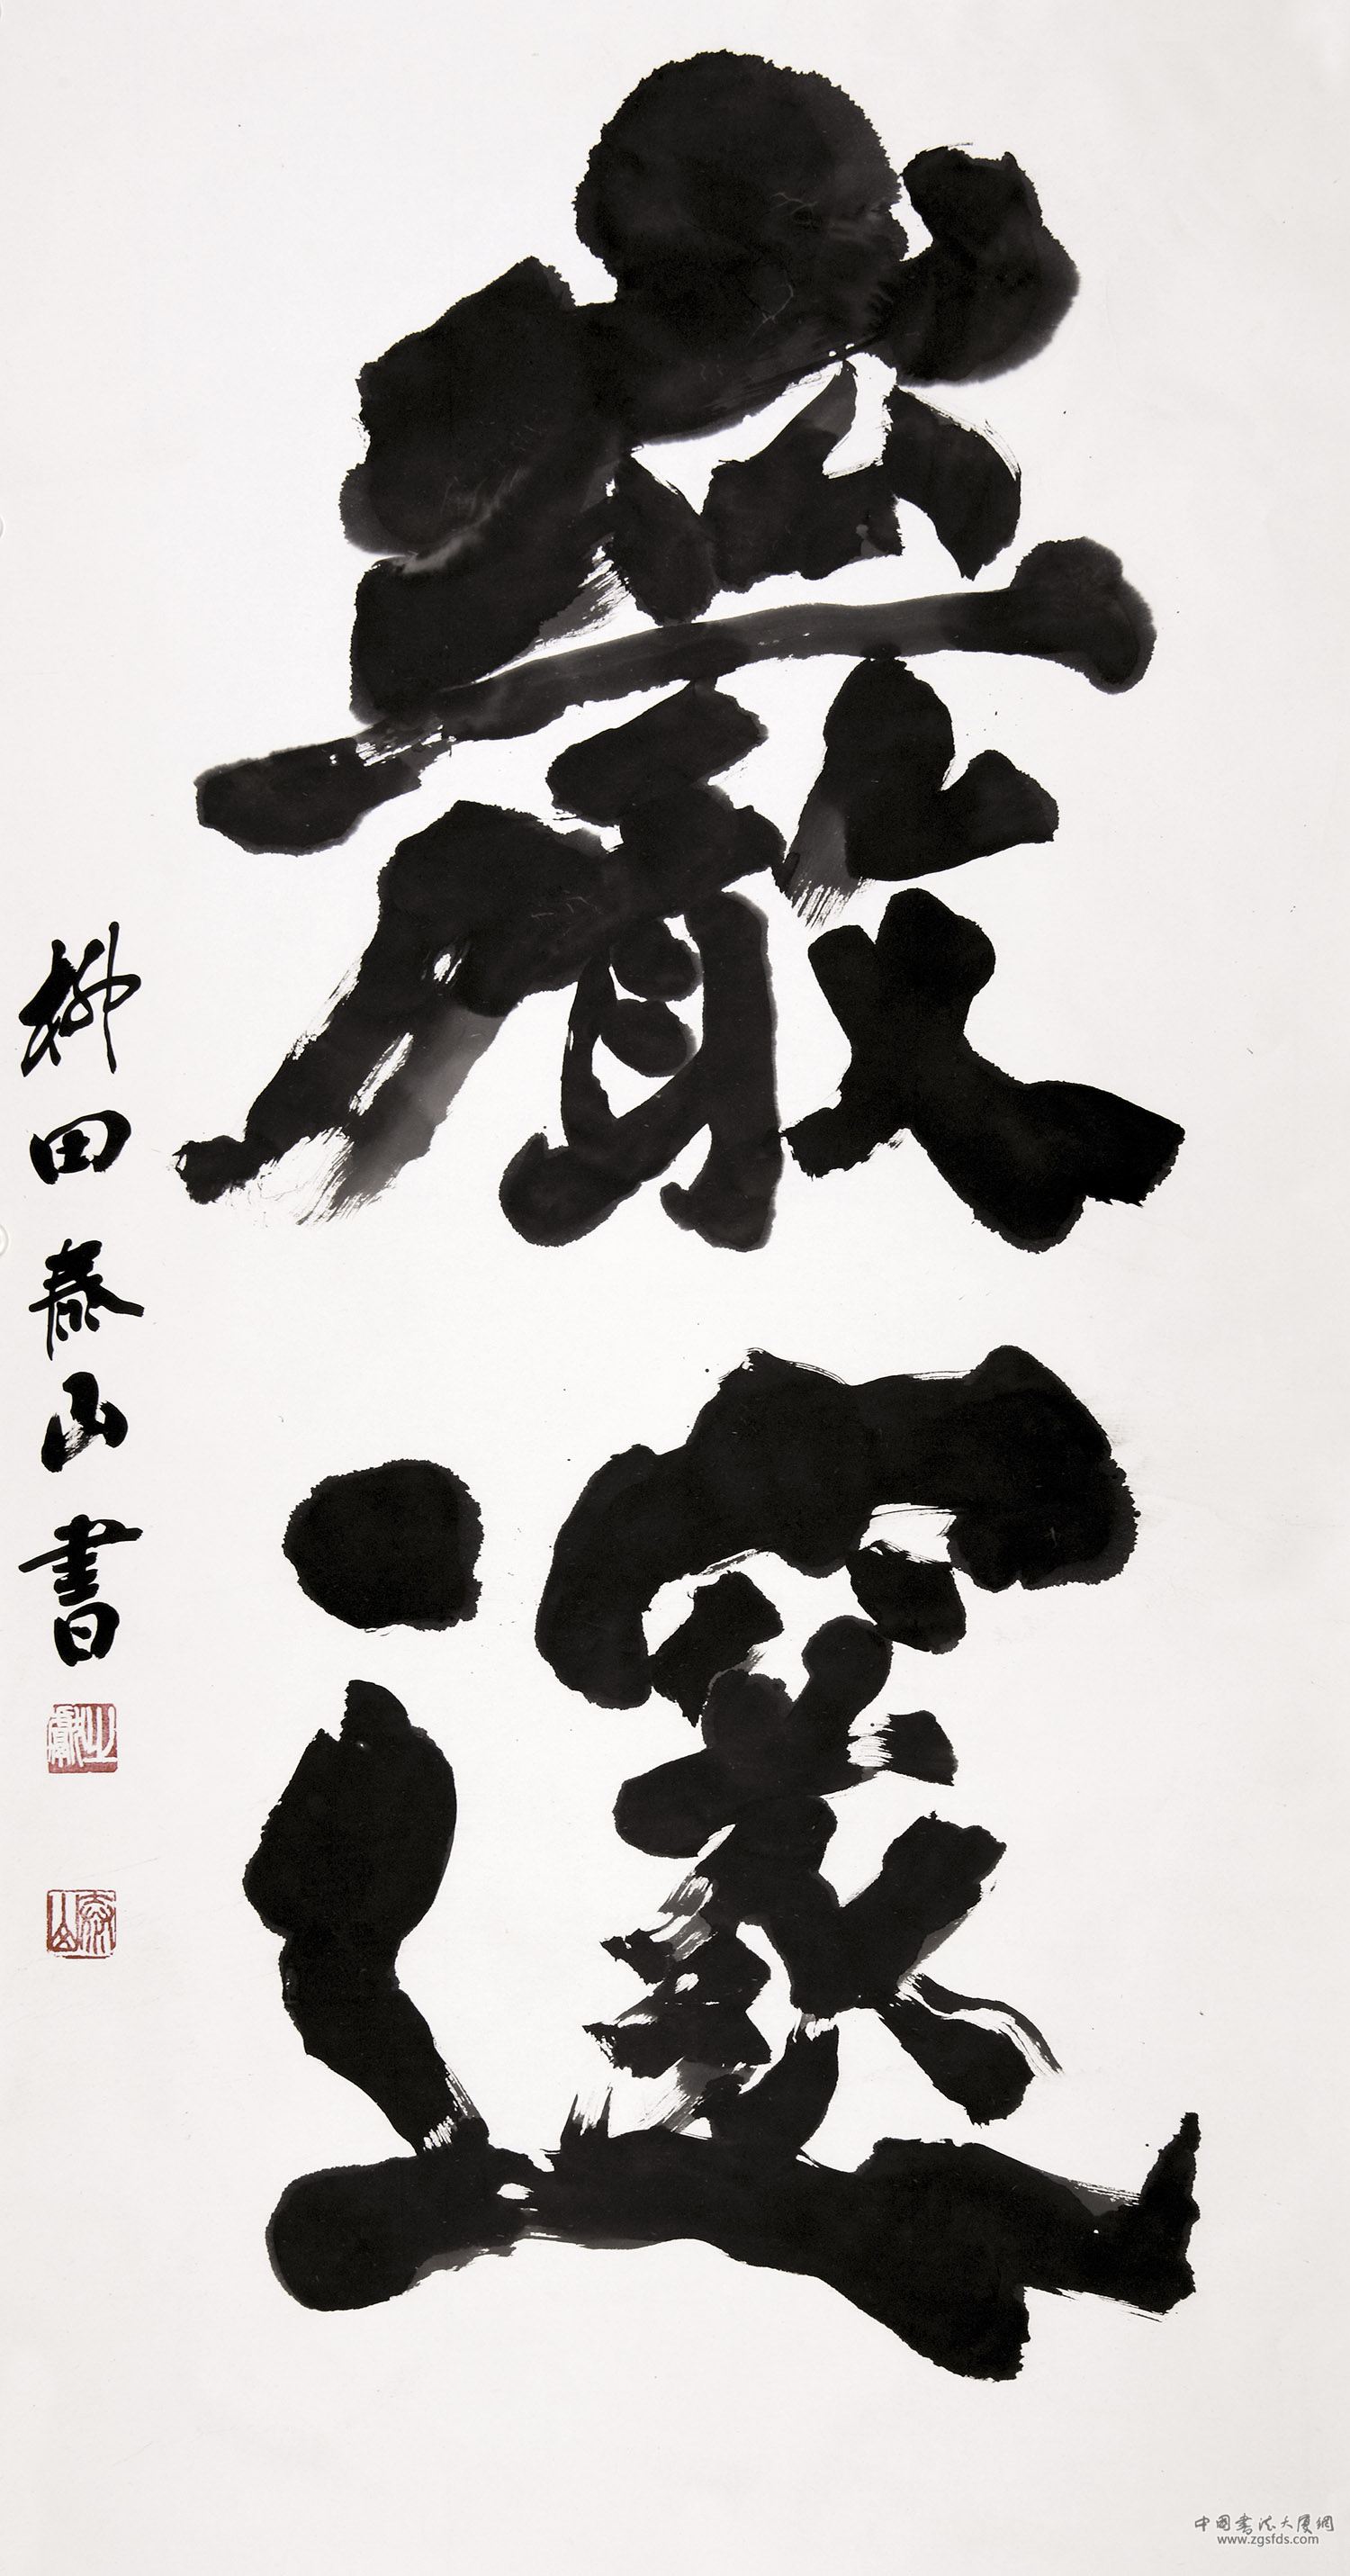 巖邃
柳田泰山書
泰山
中国书法大厦網
www.zgsfds.com